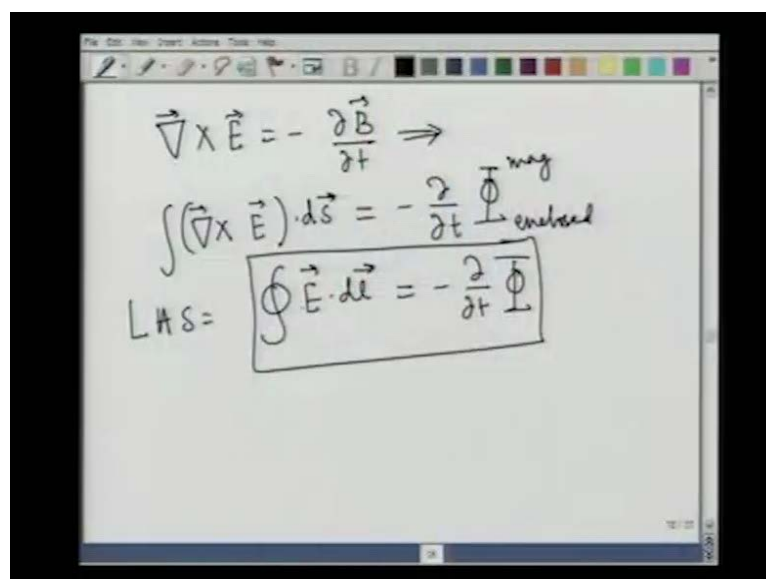 File Edit View Insert Actions Tools Help
B I
∇⃗ × E⃗ = - ∂B⃗/∂t ⇒
∫(∇⃗ × E⃗)·ds⃗ = - ∂/∂t Φ mag enclosed
LHS = ∮ E⃗·dl⃗ = - ∂/∂t Φ